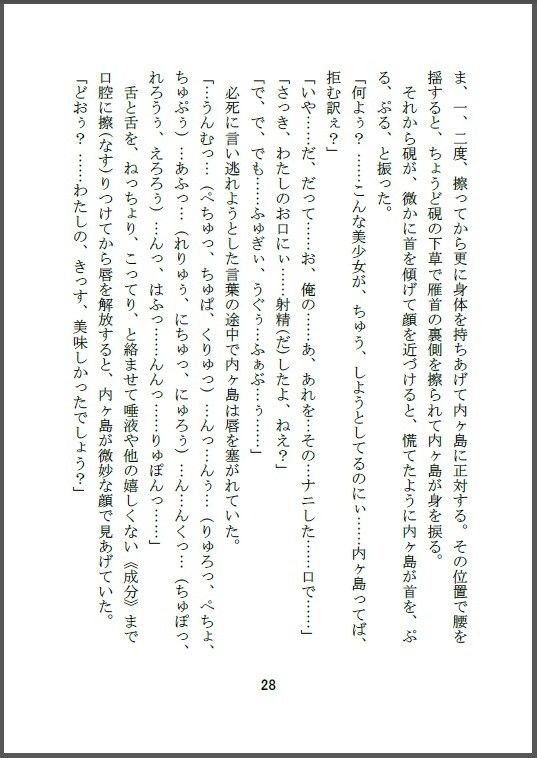 ま、一、二度、擦ってから更に身体を持ちあげて内ヶ島に正対する。その位置で腰を
揺すると、ちょうど硯の下草で雁首の裏側を擦られて内ヶ島が身を捩る。
それから硯が、微かに首を傾げて顔を近づけると、慌てたように内ヶ島が首を、ぷ
る、ぷる、と振った。
「何よぅ？……こんな美少女が、ちゅう、しようとしてるのにぃ……内ヶ島ってば、
拒む訳ぇ？」
「いや……だ、だって……お、俺の……あ、あれを…その…ナニした……口で……」
「さっき、わたしのお口にぃ……射精(だ)したよ、ねえ？」
「で、で、でも……ふゅぎぃ、うぐぅ…ふぁぶ…ぅ……」
必死に言い逃れようとした言葉の途中で内ヶ島は唇を塞がれていた。
「…うんむっ…（ぺちゅっ、ちゅぱ、くりゅつ）…んっ…んぅ…（りゅろっ、ぺちょ、
ちゅぷぅ）…あふっ…（れりゅぅ、にちゅっ、にゅろぅ）…ん…んくっ…（ちゅぼっ、
れろうぅ、えろろぅ）…んっ、はふっ……んんっ……りゅぽんっ……」
舌と舌を、ねっちょり、こってり、と絡ませて唾液や他の嬉しくない《成分》まで
口腔に擦(なす)りつけてから唇を解放すると、内ヶ島が微妙な顔で見あげていた。
「どおぅ？……わたしの、きっす、美味しかったでしょう？」
28